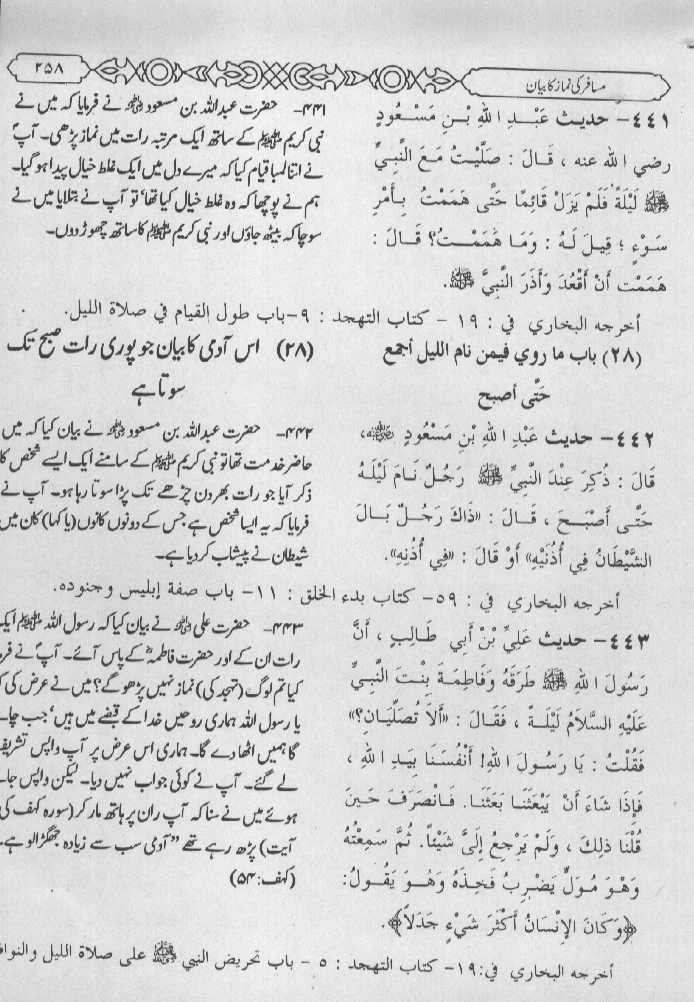 مسافر کی نماز کا بیان
۲۵۸
٤٤١- حديث عَبْدِ اللهِ بْنِ مَسْعُودٍ
رضي الله عنه ، قَالَ : صَلَّيْتُ مَعَ النَّبِيِّ
ﷺ لَيْلَةً فَلَمْ يَزَلْ قَائِمًا حَتَّى هَمَمْتُ بِأَمْرِ
سَوْءٍ ؛ قِيلَ لَهُ : وَمَا هَمَمْتَ؟ قَالَ :
هَمَمْت أَنْ أَقْعُدَ وَأَذَرَ النَّبِيَّ ﷺ.
۴۴۱- حضرت عبداللہ بن مسعودؓ نے فرمایا کہ میں نے
نبی کریم ﷺ کے ساتھ ایک مرتبہ رات میں نماز پڑھی۔ آپؐ
نے اتنا لمبا قیام کیا کہ میرے دل میں ایک غلط خیال پیدا ہو گیا۔
ہم نے پوچھا کہ وہ غلط خیال کیا تھا‘ تو آپ نے بتلایا میں نے
سوچا کہ بیٹھ جاؤں اور نبی کریم ﷺ کا ساتھ چھوڑ دوں۔
أخرجه البخاري في : ١٩ - كتاب التهجد : ٩-باب طول القيام في صلاة الليل.
(٢٨) باب ما روي فيمن نام الليل أجمع
حَتَّى أصبح
(۲۸) اس آدمی کا بیان جو پوری رات صبح تک
سوتا ہے
٤٤٢- حديث عَبْدِ اللهِ بْنِ مَسْعُودٍ ؓ،
قَالَ : ذُكِرَ عِنْدَ النَّبِيِّ ﷺ رَجُلٌ نَامَ لَيْلَهُ
حَتَّى أَصْبَحَ ، قَالَ : «ذَاكَ رَجُلٌ بَالَ
الشَّيْطَانُ فِي أُذُنَيْهِ» أَوْ قَالَ : «فِي أُذُنِهِ».
۴۴۲- حضرت عبداللہ بن مسعودؓ نے بیان کیا کہ میں
حاضر خدمت تھا تو نبی کریم ﷺ کے سامنے ایک ایسے شخص کا
ذکر آیا جو رات بھر دن چڑھے تک پڑا سوتا رہا ہو۔ آپ نے
فرمایا کہ یہ ایسا شخص ہے جس کے دونوں کانوں (یا کہا) کان میں
شیطان نے پیشاب کر دیا ہے۔
أخرجه البخاري في : ٥٩- كتاب بدء الخلق : ١١- باب صفة إبليس وجنوده.
٤٤٣- حديث عَلِيِّ بْنِ أَبِي طَالِبٍ ، أَنَّ
رَسُولَ اللهِ ﷺ طَرَقَهُ وَفَاطِمَةَ بِنْتَ النَّبِيِّ
عَلَيْهِ السَّلاَمُ لَيْلَةً ، فَقَالَ : «أَلاَ تُصَلِّيَانِ؟»
فَقُلْتُ : يَا رَسُولَ اللهِ! أَنْفُسَنَا بِيَدِ اللهِ ،
فَإِذَا شَاءَ أَنْ يَبْعَثَنَا بَعَثَنَا. فَانْصَرَفَ حَينَ
قُلْنَا ذلِكَ ، وَلَمْ يَرْجِعْ إِلَيَّ شَيْئًا. ثُمَّ سَمِعْتُهُ
وَهْوَ مُوَلٍّ يَضْرِبُ فَخِذَهُ وَهْوَ يَقُولُ:
﴿وَكَانَ الإِنْسَانُ أَكْثَرَ شَيْءٍ جَدَلاً﴾.
۴۴۳- حضرت علیؓ نے بیان کیا کہ رسول اللہ ﷺ ایک
رات ان کے اور حضرت فاطمہؓ کے پاس آئے۔ آپؐ نے
کیا تم لوگ (تہجد کی) نماز نہیں پڑھو گے؟ میں نے عرض کی
یا رسول اللہ ہماری روحیں خدا کے قبضے میں ہیں‘ جب
گا ہمیں اٹھا دے گا۔ ہماری اس عرض پر آپ واپس تشریف
لے گئے۔ آپ نے کوئی جواب نہیں دیا۔ لیکن واپس
ہوئے میں نے سنا کہ آپ ران پر ہاتھ مار کر (سورہ کہف کی
آیت) پڑھ رہے تھے ”آدمی سب سے زیادہ جھگڑالو ہے۔
(کہف:۵۴)
أخرجه البخاري في:١٩- كتاب التهجد : ٥ - باب تحريض النبي ﷺ على صلاة الليل